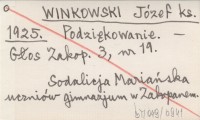 a WINKOWSKI Józef ks.
1925. Podziękowanie. —
Głos Zakop. 3, nr 19.
Sodalicja Mariańska
uczniów gimnazjum w Zakopanem.